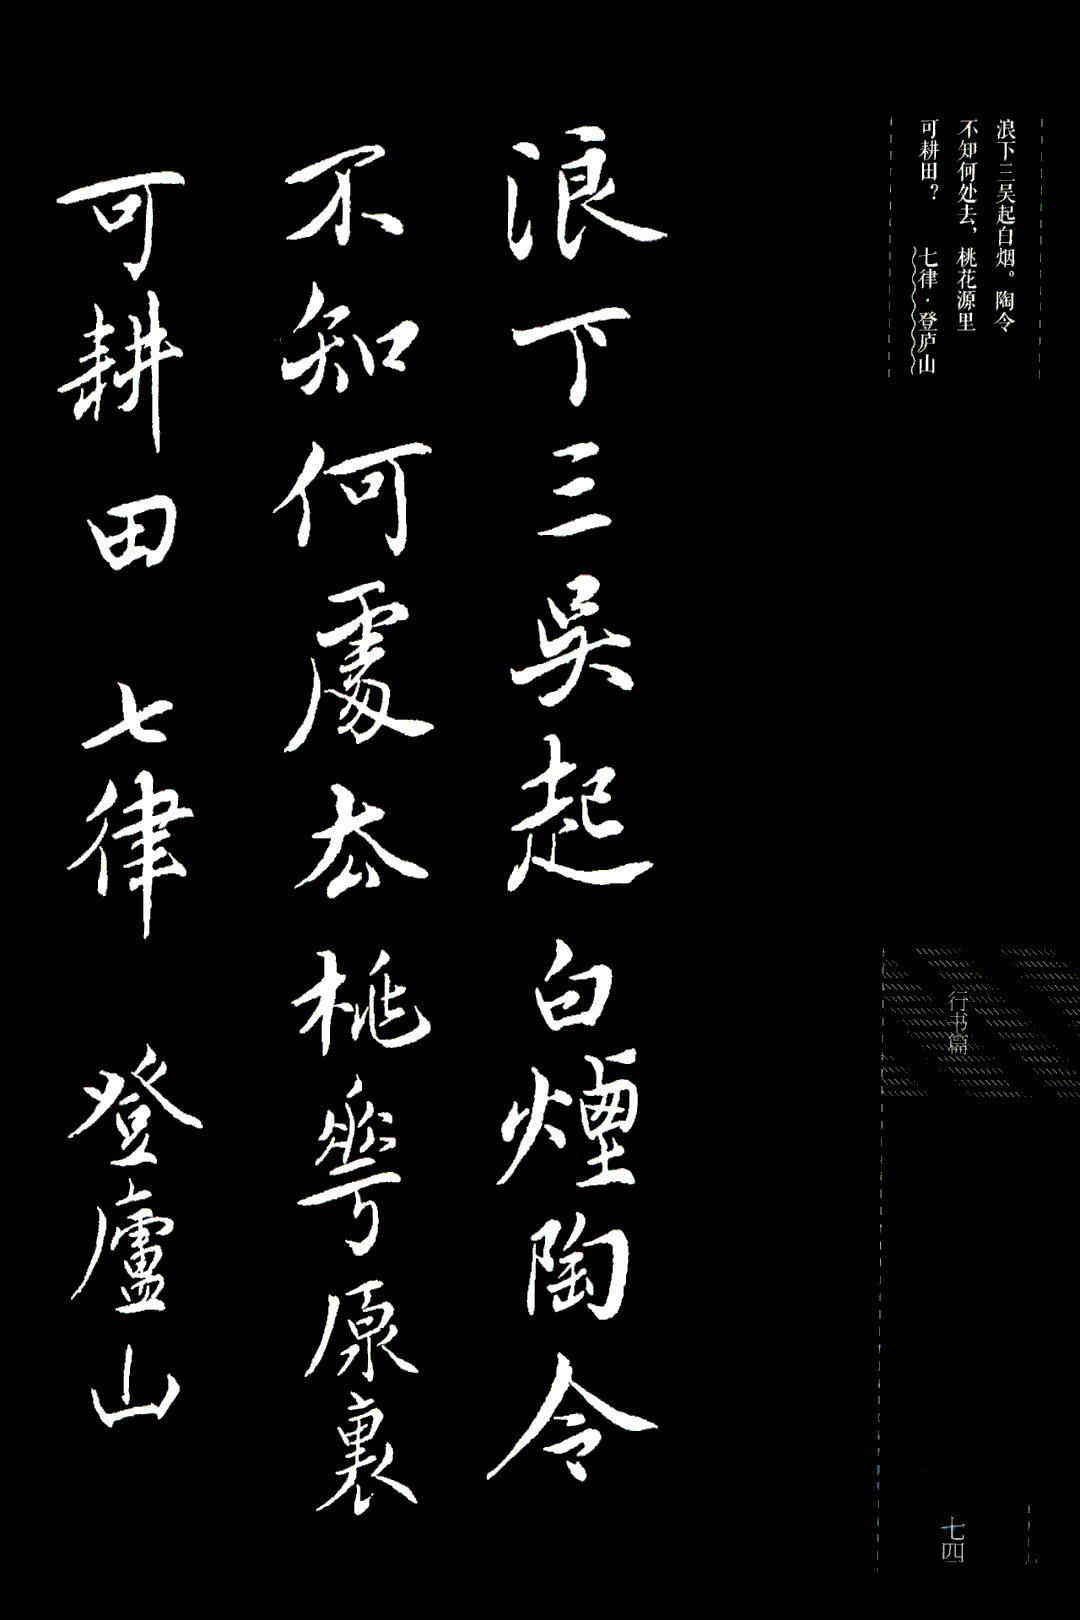 浪下三吴起白烟。陶令
不知何处去，桃花源里
可耕田？　七律·登庐山
浪下三吳起白煙陶令
不知何處去桃華原裏
可耕田　七律　登廬山
行书篇
七四